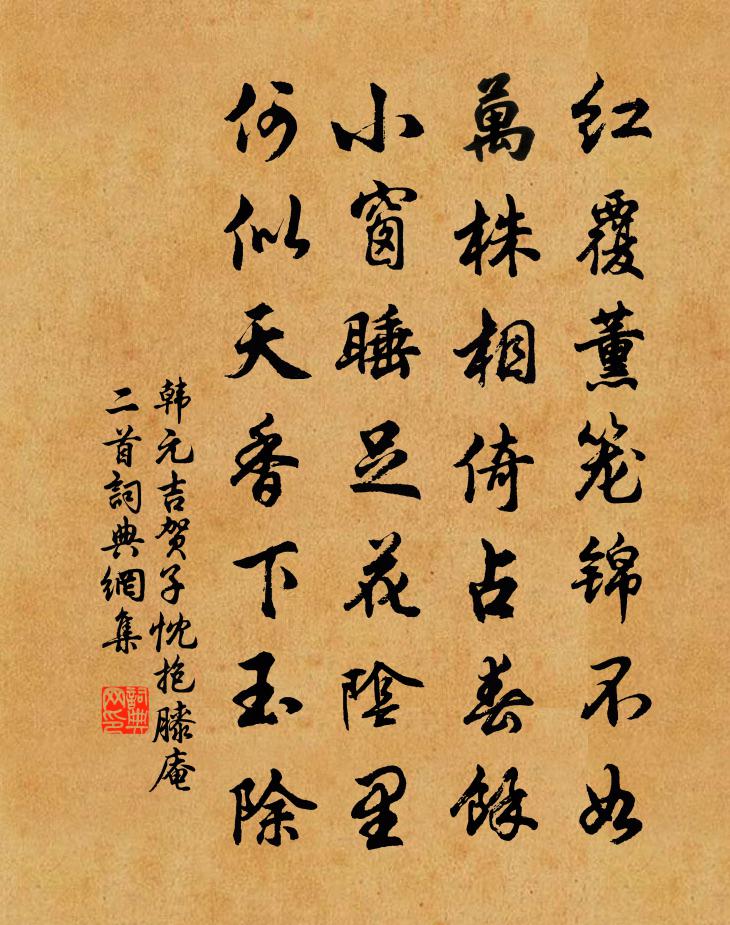 红覆薰笼锦不如
萬株相倚占春餘
小窗睡足花陰里
何似天香下玉除
韩元吉贺子忱抱膝庵
二首詞典網集
詞典
网印